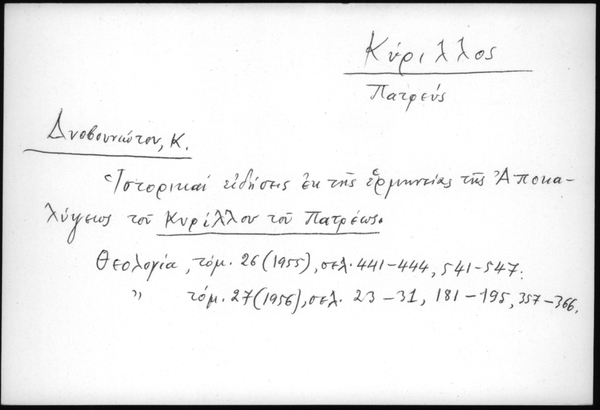 Κύριλλος
Πατρεύς
Δυοβουνιώτου, Κ.
Ἱστορικαί εἰδήσεις ἐκ τῆς ἑρμηνείας τῆς Ἀποκα-
λύψεως τοῦ Κυρίλλου τοῦ Πατρέως.
Θεολογία, τόμ. 26 (1955), σελ. 441-444, 541-547.
" τόμ. 27 (1956), σελ. 23-31, 181-195, 357-366.